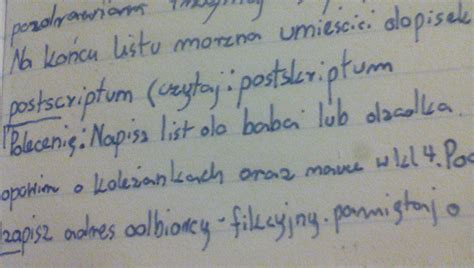 pozdrawiam
Na końcu listu można umieścić dopisek
postscriptum (czytaj: postskriptum
Polecenie: Napisz list do babci lub dziadka.
opowiedz o koleżankach oraz nauce w kl 4. Pod
zapisz adres odbiorcy - fikcyjny. pamiętaj o